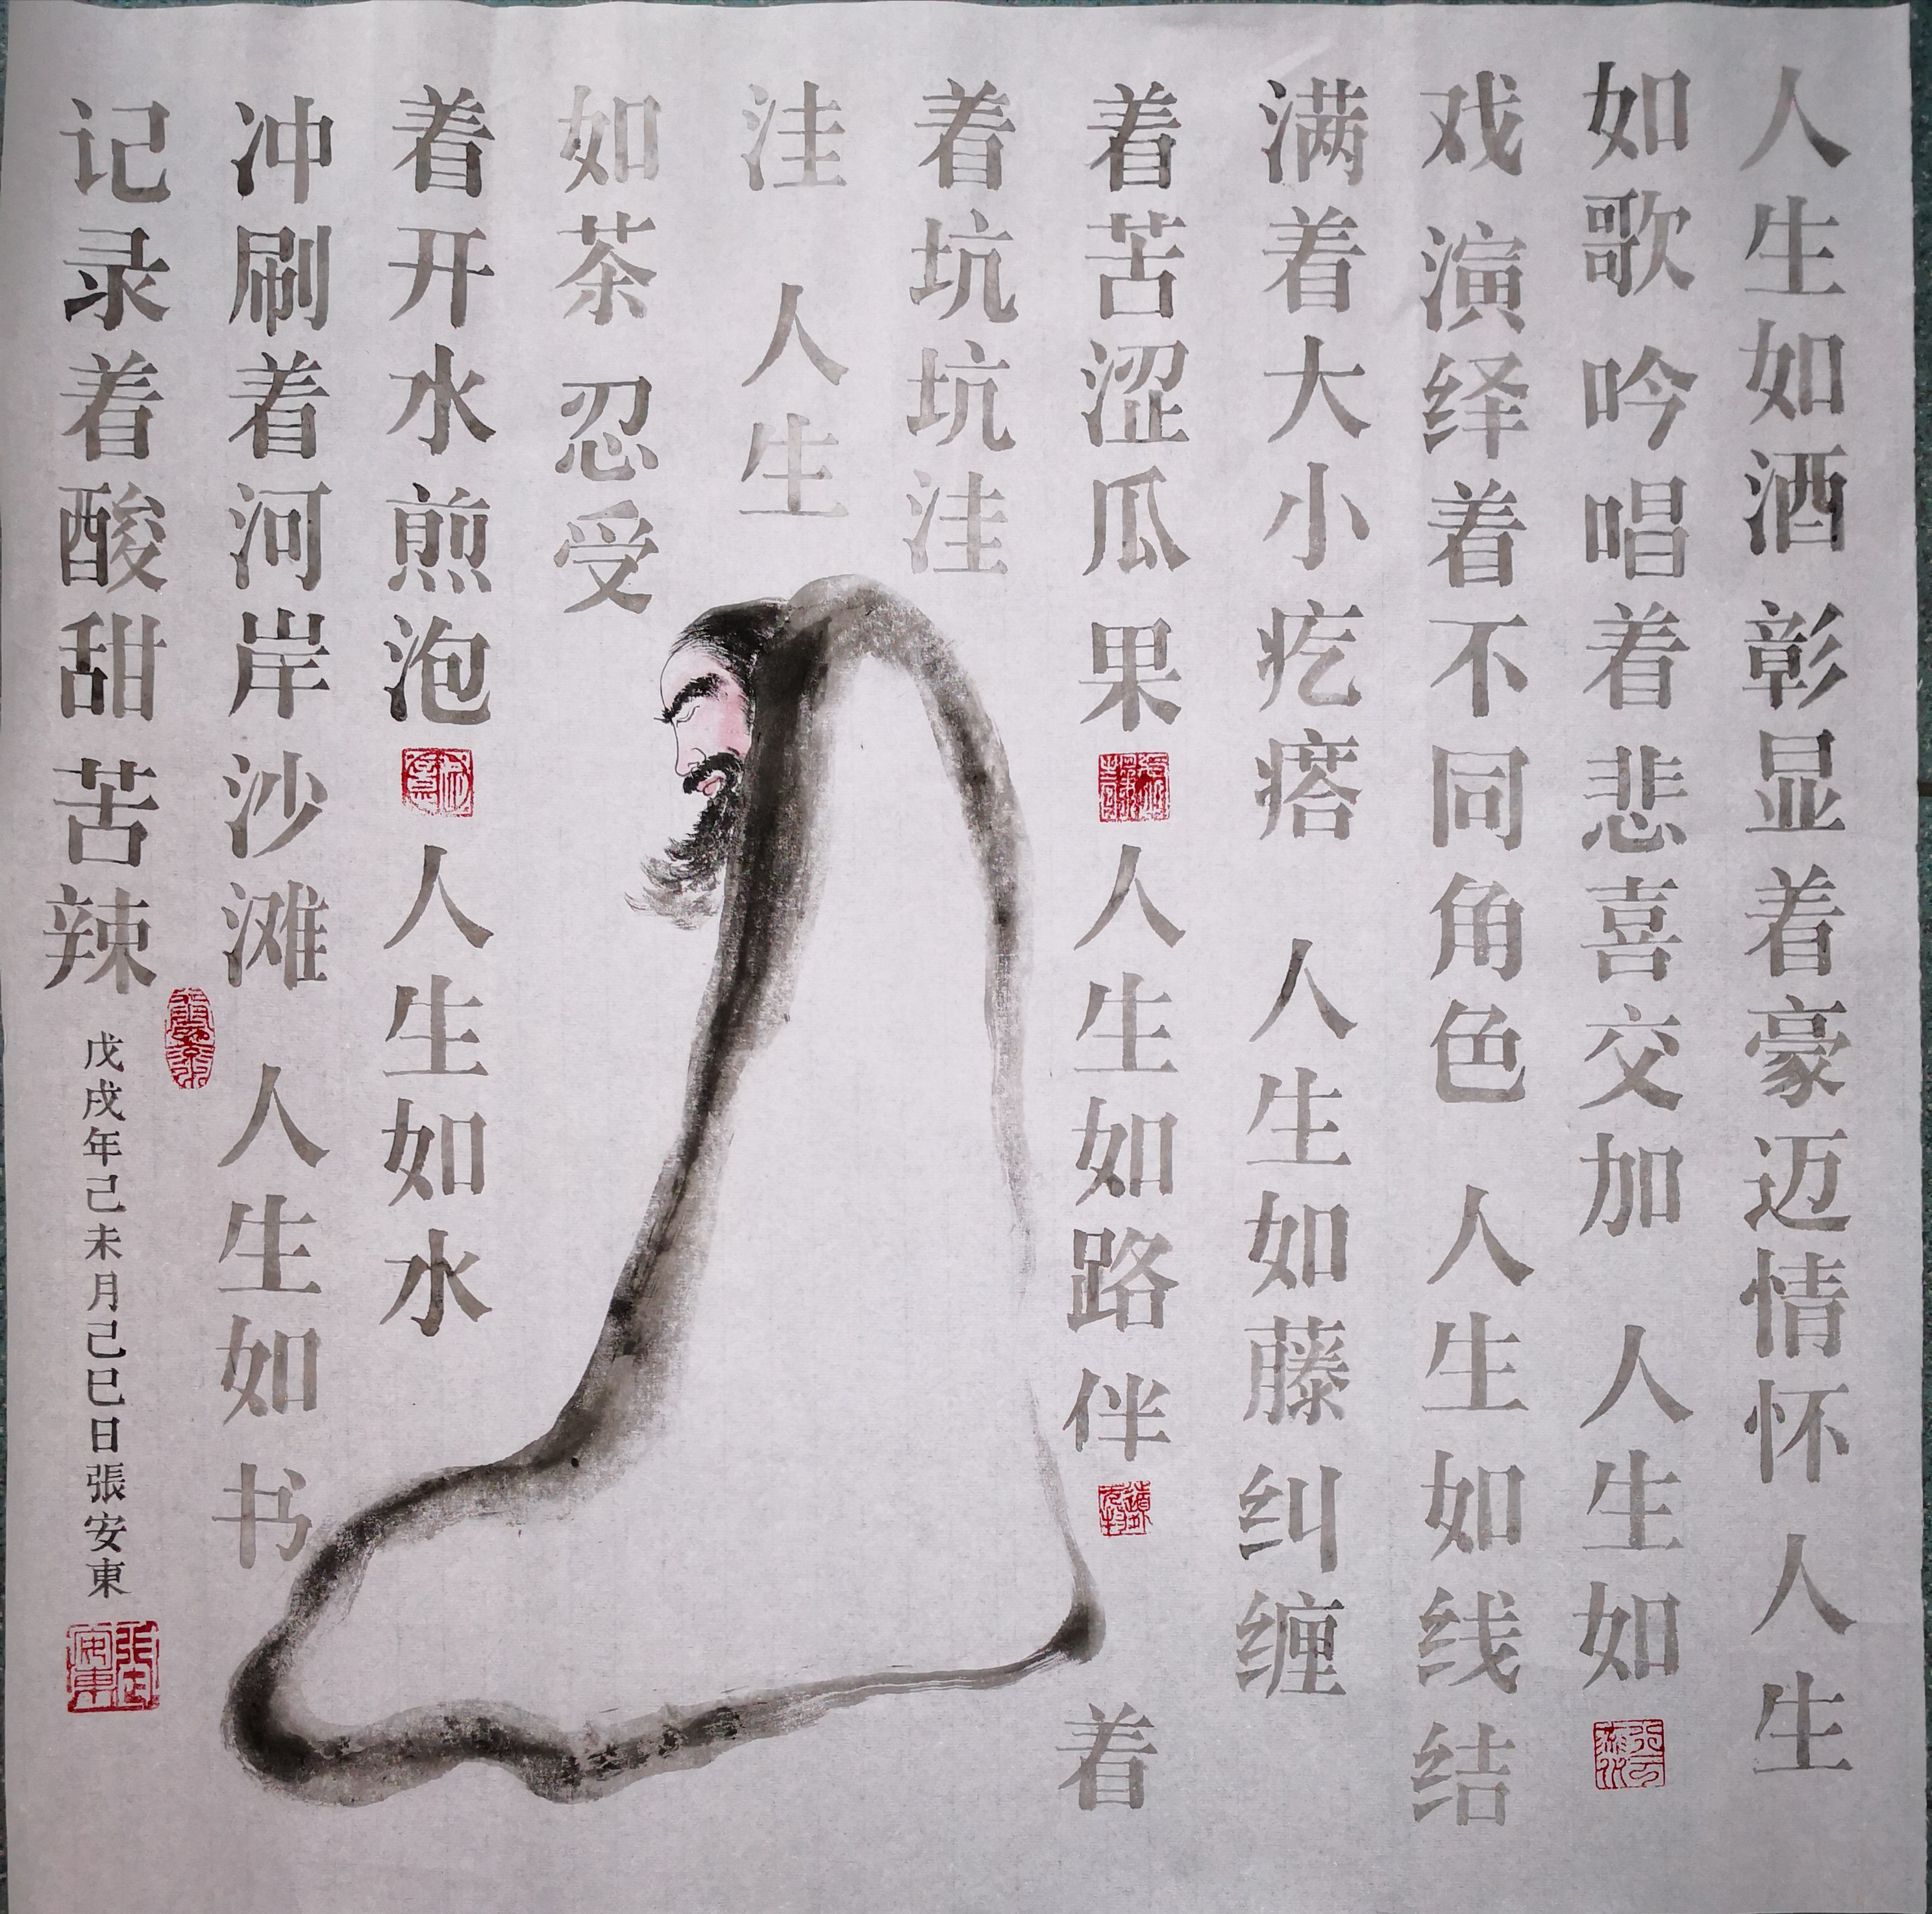 人生如酒 彰显着豪迈情怀 人生
如歌 吟唱着悲喜交加 人生如
戏 演绎着不同角色 人生如线 结
满着大小疙瘩 人生如藤 纠缠
着苦涩瓜果 人生如路 伴 着
着坑坑洼
洼 人生
如茶 忍受
着开水煎泡 人生如水
冲刷着河岸沙滩 人生如书
记录着酸甜苦辣
戊戌年己未月己巳日張安東